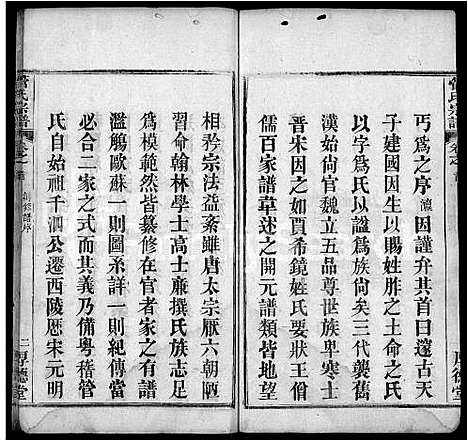 丐為之序瀛因謹弁其首曰邃古天
子建國因生以賜姓胙之土而命之氏
以字爲氏以諡爲族尚矣三代以下
漢始尚官魏立五品晉宋別卑寒士
庶之分如賈希鏡姓氏要狀
儒百家譜草述之開元譜類皆以
相矜宗法益紊雖唐太宗厭六朝陋
習命翰林學士高士廉撰氏族志足
爲模範而僅官者家之有譜
濫觴歐蘇一則圖系詳一則紀傳當
必合二家之式而其義乃備粤稽管
氏自始祖千泗公遷西陵歷宋元明
管氏宗譜
卷之首
二
厚德堂
管氏宗譜
卷之首
厚德堂